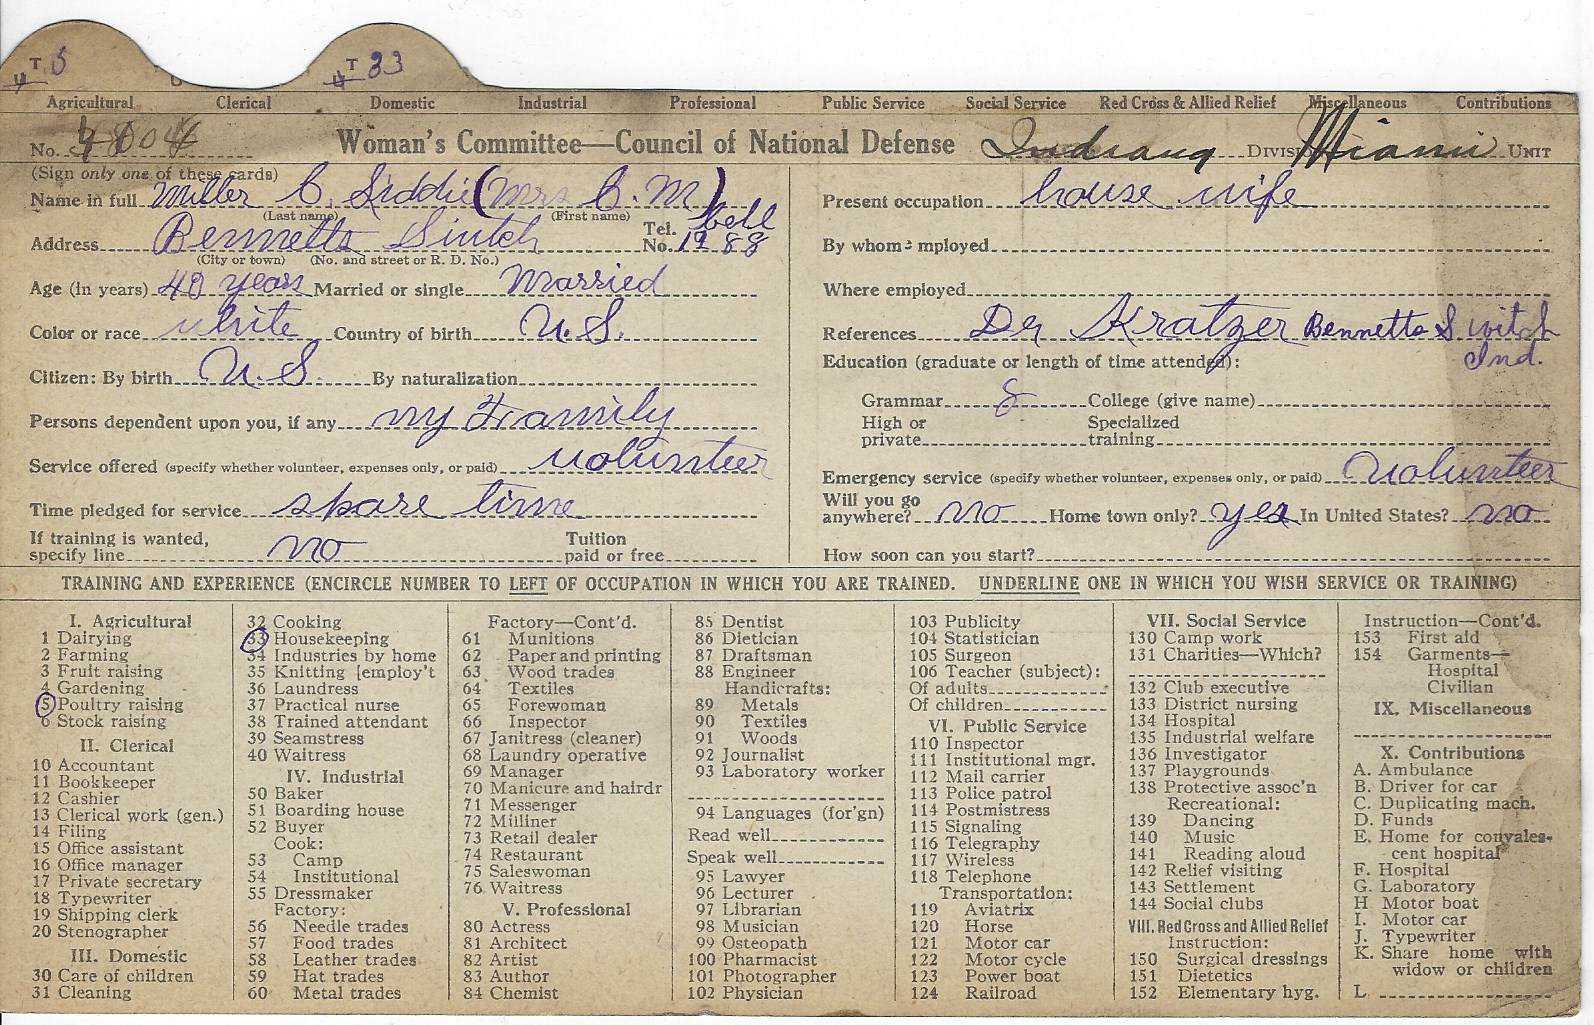 T 5 T 33
Agricultural Clerical Domestic Industrial Professional Public Service Social Service Red Cross & Allied Relief Miscellaneous Contributions
No. Woman's Committee—Council of National Defense Indiana Division Miami Unit
(Sign only one of these cards)
Name in full Miller C. Liddie (Mrs C. M)
(Last name) (First name)
Address Bennetts Switch Tel. No. bell 1988
(City or town) (No. and street or R. D. No.)
Age (in years) 48 years Married or single Married
Color or race white Country of birth U. S.
Citizen: By birth U. S. By naturalization
Persons dependent upon you, if any my Family
Service offered (specify whether volunteer, expenses only, or paid) volunteer
Time pledged for service spare time
If training is wanted, specify line no Tuition paid or free
Present occupation house wife
By whom employed
Where employed
References Dr Kratzer Bennetts Switch
Ind.
Education (graduate or length of time attended):
Grammar 8 College (give name)
High or private Specialized training
Emergency service (specify whether volunteer, expenses only, or paid) Volunteer
Will you go anywhere? no Home town only? yes In United States? no
How soon can you start?
TRAINING AND EXPERIENCE (ENCIRCLE NUMBER TO LEFT OF OCCUPATION IN WHICH YOU ARE TRAINED. UNDERLINE ONE IN WHICH YOU WISH SERVICE OR TRAINING)
I. Agricultural
1 Dairying
2 Farming
3 Fruit raising
4 Gardening
5 Poultry raising
6 Stock raising
II. Clerical
10 Accountant
11 Bookkeeper
12 Cashier
13 Clerical work (gen.)
14 Filing
15 Office assistant
16 Office manager
17 Private secretary
18 Typewriter
19 Shipping clerk
20 Stenographer
III. Domestic
30 Care of children
31 Cleaning
32 Cooking
33 Housekeeping
34 Industries by home
35 Knitting [employ't
36 Laundress
37 Practical nurse
38 Trained attendant
39 Seamstress
40 Waitress
IV. Industrial
50 Baker
51 Boarding house
52 Buyer
Cook:
53 Camp
54 Institutional
55 Dressmaker
Factory:
56 Needle trades
57 Food trades
58 Leather trades
59 Hat trades
60 Metal trades
Factory—Cont'd.
61 Munitions
62 Paper and printing
63 Wood trades
64 Textiles
65 Forewoman
66 Inspector
67 Janitress (cleaner)
68 Laundry operative
69 Manager
70 Manicure and hairdr
71 Messenger
72 Milliner
73 Retail dealer
74 Restaurant
75 Saleswoman
76 Waitress
V. Professional
80 Actress
81 Architect
82 Artist
83 Author
84 Chemist
85 Dentist
86 Dietician
87 Draftsman
88 Engineer
Handicrafts:
89 Metals
90 Textiles
91 Woods
92 Journalist
93 Laboratory worker
94 Languages (for'gn)
Read well
Speak well
95 Lawyer
96 Lecturer
97 Librarian
98 Musician
99 Osteopath
100 Pharmacist
101 Photographer
102 Physician
103 Publicity
104 Statistician
105 Surgeon
106 Teacher (subject):
Of adults
Of children
VI. Public Service
110 Inspector
111 Institutional mgr.
112 Mail carrier
113 Police patrol
114 Postmistress
115 Signaling
116 Telegraphy
117 Wireless
118 Telephone
Transportation:
119 Aviatrix
120 Horse
121 Motor car
122 Motor cycle
123 Power boat
124 Railroad
VII. Social Service
130 Camp work
131 Charities—Which?
132 Club executive
133 District nursing
134 Hospital
135 Industrial welfare
136 Investigator
137 Playgrounds
138 Protective assoc'n
Recreational:
139 Dancing
140 Music
141 Reading aloud
142 Relief visiting
143 Settlement
144 Social clubs
VIII. Red Cross and Allied Relief
Instruction:
150 Surgical dressings
151 Dietetics
152 Elementary hyg.
Instruction—Cont'd.
153 First aid
154 Garments—
Hospital
Civilian
IX. Miscellaneous
X. Contributions
A. Ambulance
B. Driver for car
C. Duplicating mach.
D. Funds
E. Home for convales-
cent hospital
F. Hospital
G. Laboratory
H Motor boat
I. Motor car
J. Typewriter
K. Share home with
widow or children
L